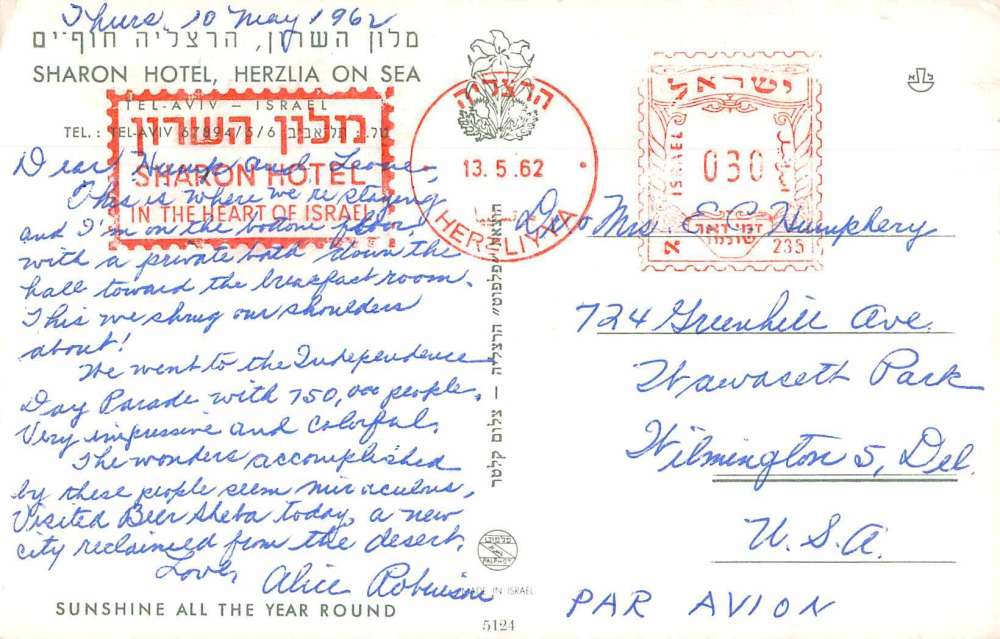 Thurs. 10 May 1962
מלון השרון, הרצליה חוף־ים
SHARON HOTEL, HERZLIA ON SEA
TEL-AVIV – ISRAEL
TEL.: TEL-AVIV 67894/5/6 טל.: תל־אביב
מלון השרון
SHARON HOTEL
IN THE HEART OF ISRAEL
Dear Hump and Leone,
This is where we're staying
and I'm on the bottom floor
with a private bath down the
hall toward the breakfast room.
This we shrug our shoulders
about!
We went to the Independence
Day Parade with 750,000 people.
Very impressive and colorful.
The wonders accomplished
by these people seem miraculous,
Visited Beer Sheba today, a new
city reclaimed from the desert.
Love,
Alice Robinson
SUNSHINE ALL THE YEAR ROUND
הרצליה
13.5.62
HERZLIYYA
ישראל
ISRAEL
030
דמי דאר
שולמו
א
235
הוצאת "פלפוט" הרצליה — צלום קלטר
PALPHOT
MADE IN ISRAEL
5124
Mrs. E. C. Humphery
724 Greenhill Ave.
Wawaseth Park
Wilmington 5, Del.
U.S.A.
PAR AVION